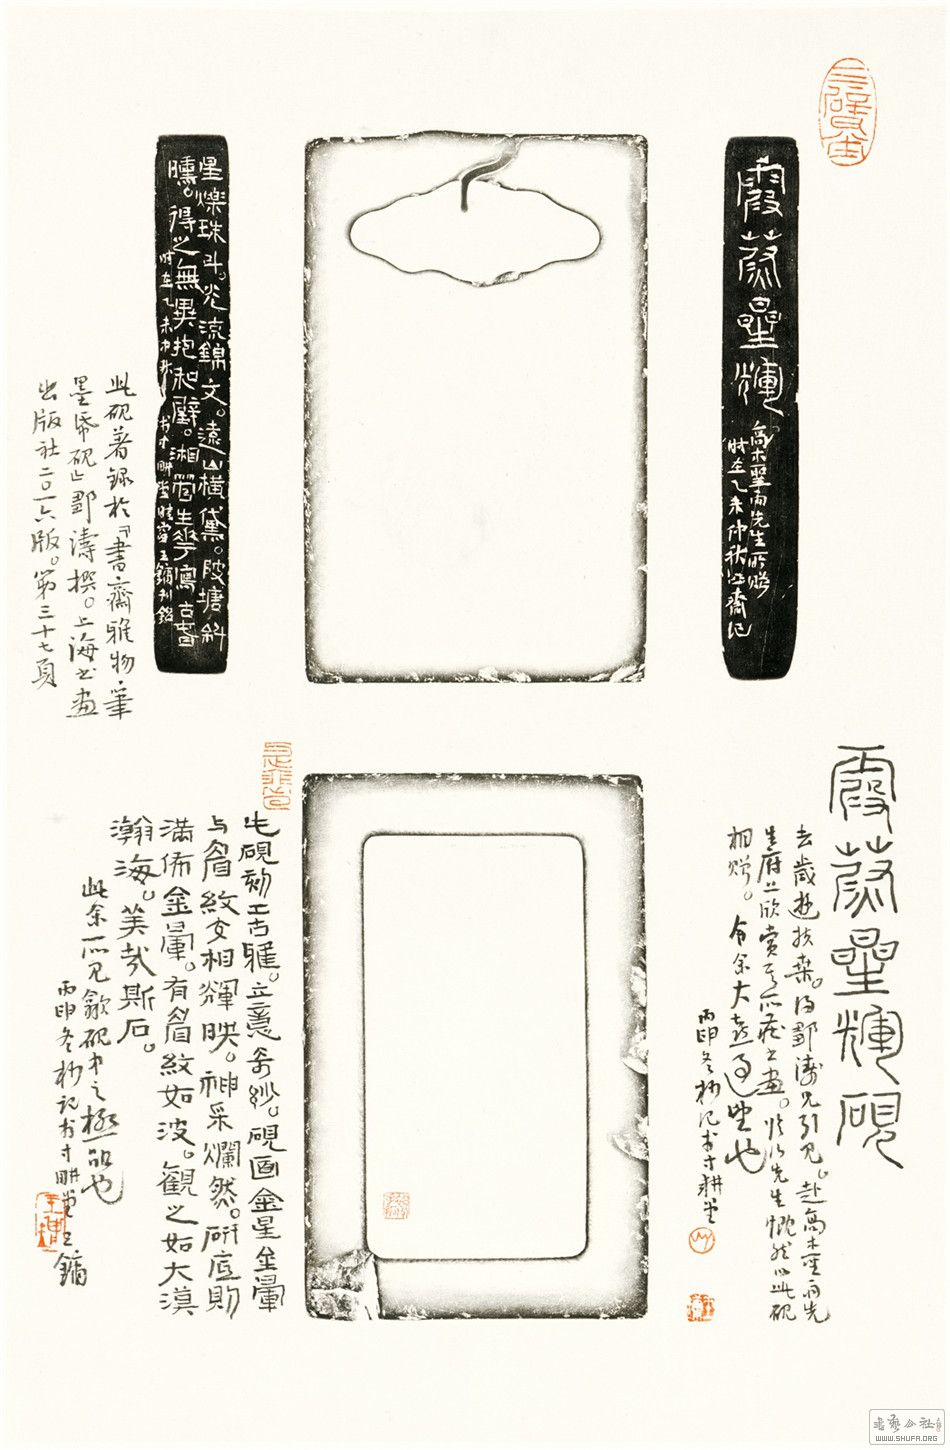 霞蔚星輝
高木聖雨先生所贈
時在乙未仲秋
星爍珠斗。光流錦文。遠山橫黛。陂塘斜
曛。得之無異抱和璧。湘管生華寫古春
時在乙未仲秋
霞蔚星輝硯
去歲遊扶桑。得鄒濤兄引見。赴高木聖雨先
生府上欣賞其所藏書畫。臨行先生慨然以此硯
相贈。令余大喜過望也
丙申冬杪記於寸耕堂
此硯著錄於『書齋雅物·筆
墨紙硯』鄒濤撰。上海書畫
出版社二〇一六版。第三十七頁
此硯刻工古雅。立意奇紗。硯面金星金暈
与眉紋交相輝映。神采爛然。硯底則
滿佈金暈。有眉紋如波。觀之如大漠
瀚海。美哉斯石。
此余所見歙硯中之極品也
丙申冬杪記於寸耕堂 王鏞
WWW.SHUFA.ORG